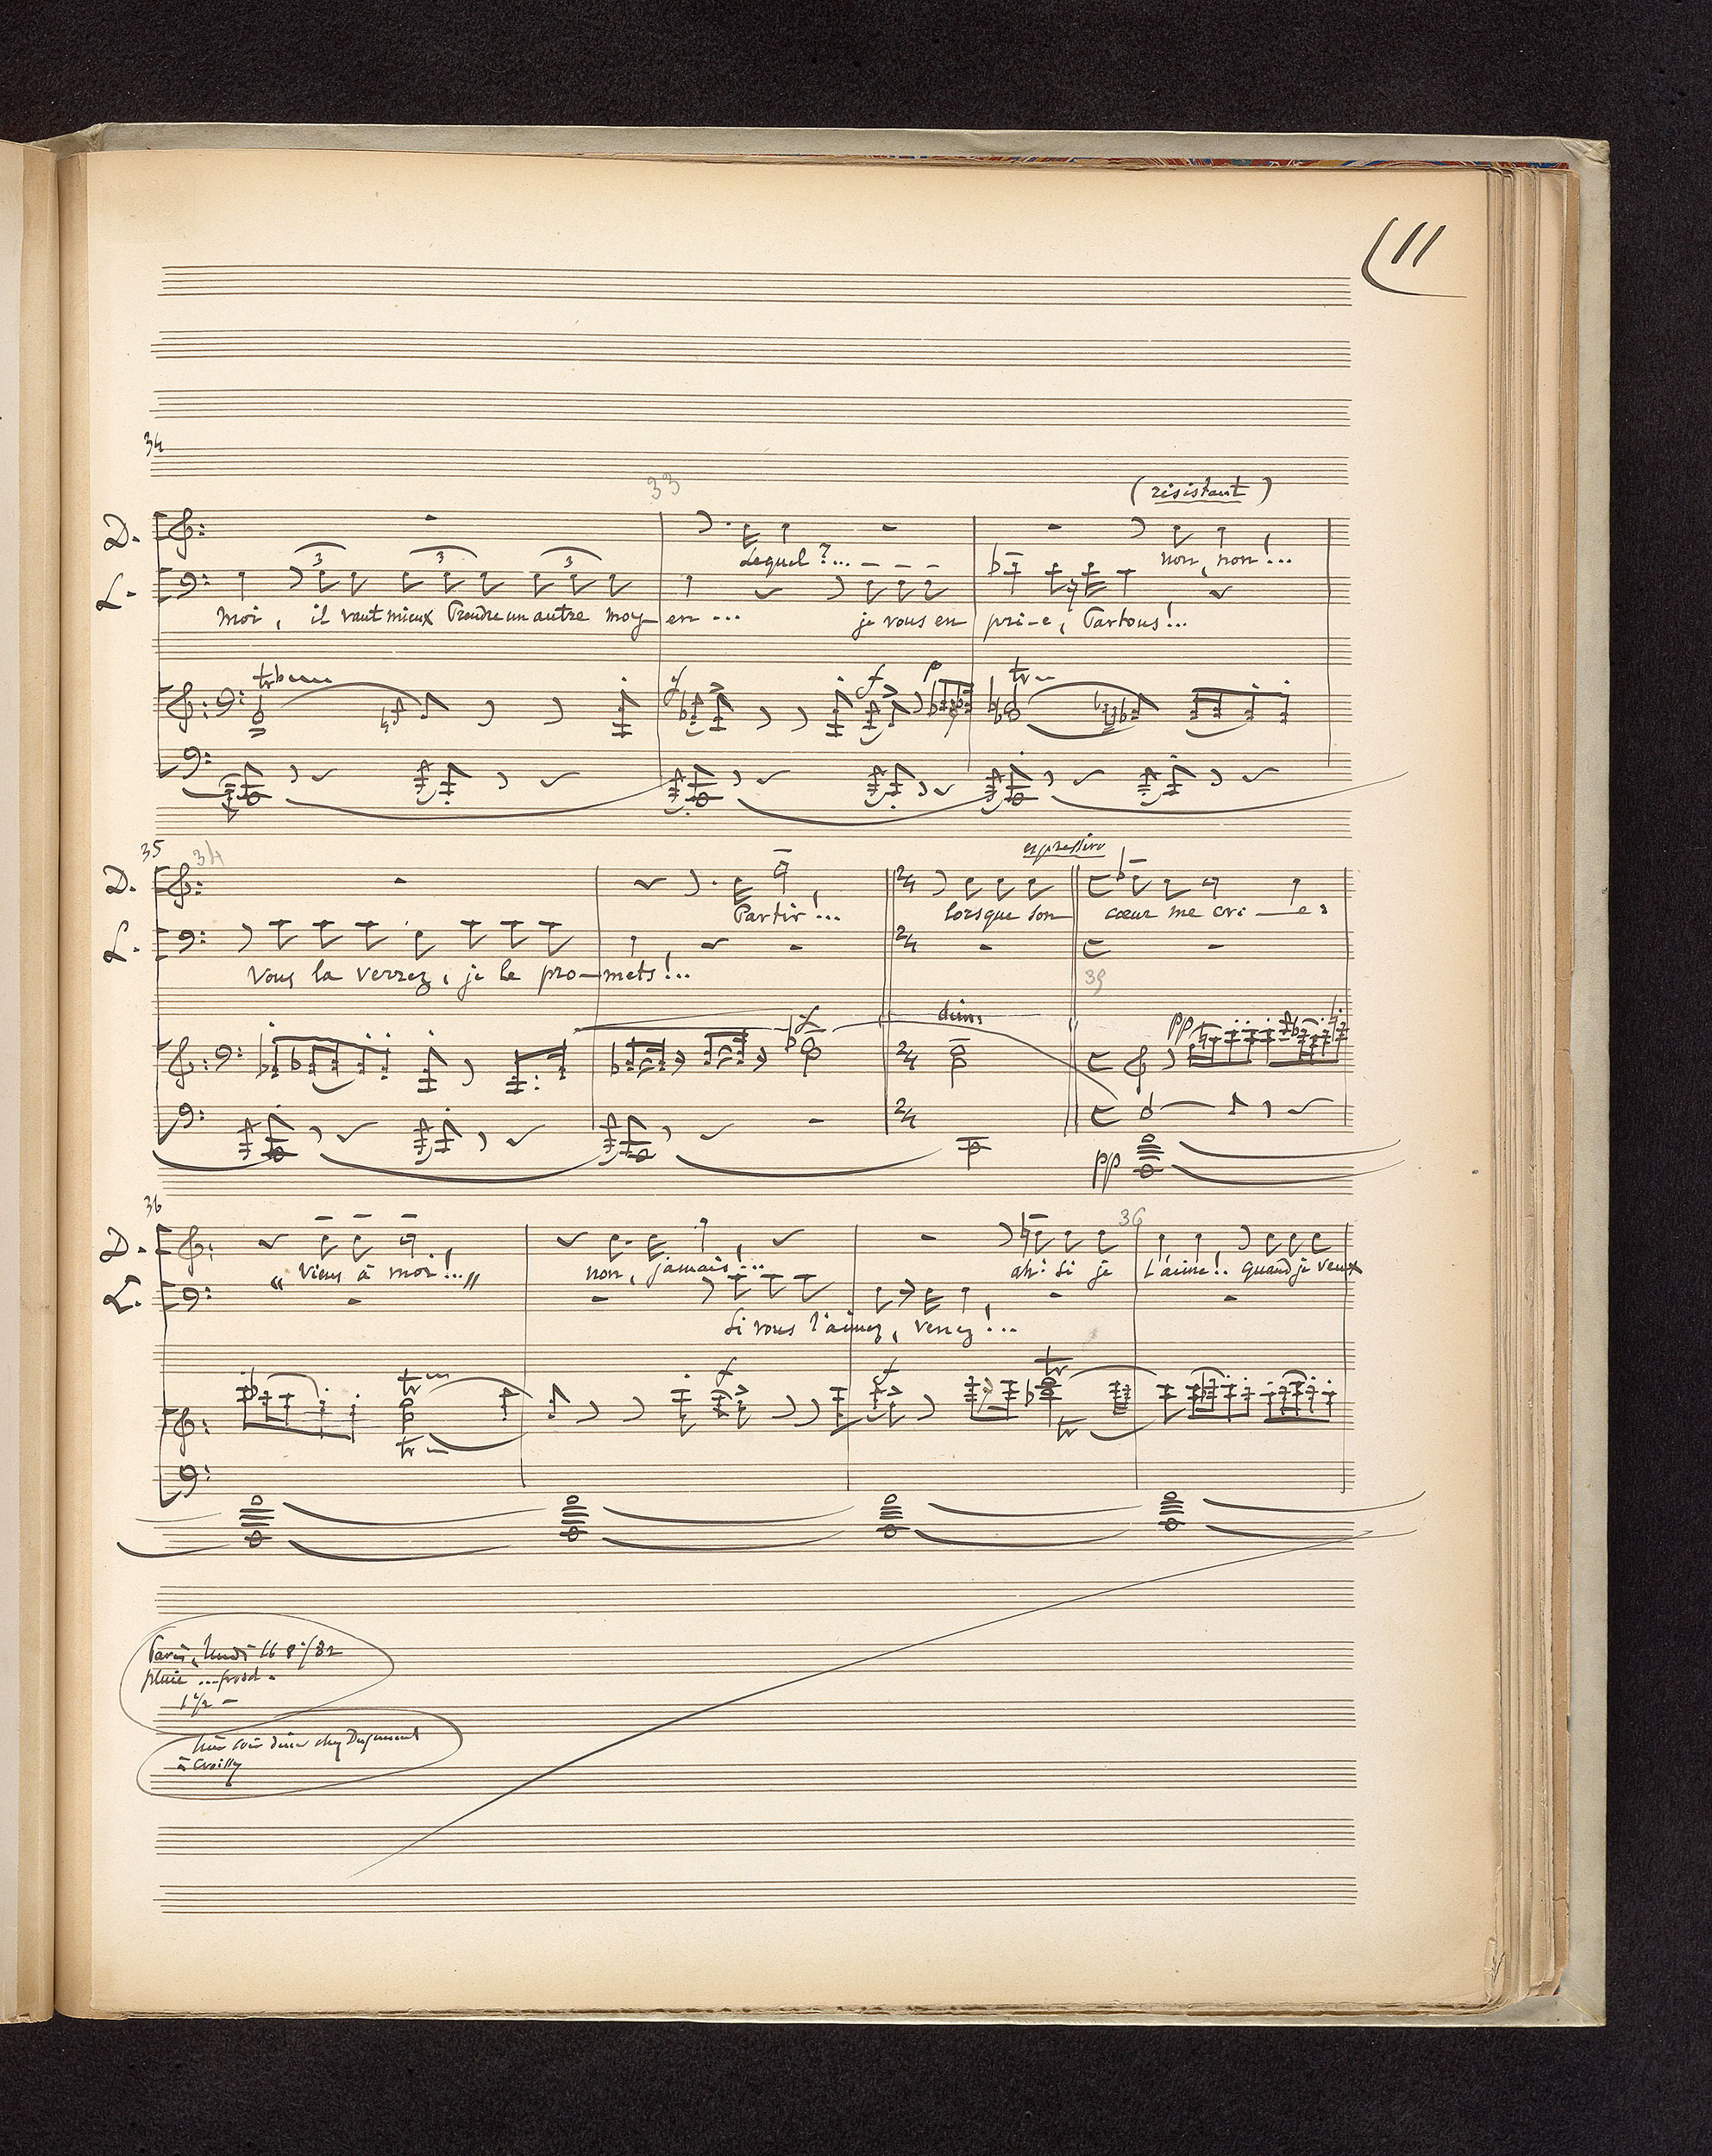 11
34
33
(résistant)
D.
Lequel ?... non, non !...
3 3 3
L.
moi, il vaut mieux Prendre un autre moy-en ... je vous en pri-e, Partons !...
tr
f f p tr
35 34
expressivo
D.
Partir !... lorsque son cœur me cri-e:
L.
Vous la verrez, je le pro-mets !..
2/4 2/4
35
f dim. pp
2/4
2/4
pp
36
36
D.
" Viens à moi !... " non, jamais !... ah! si je L'aime !.. quand je veux
L.
Si vous l'aimez, venez !...
tr f f tr
tr tr
Paris, lundi 16 8/82
pluie ... froid.
1 1/2 -
hier soir diner chez
à Croissy